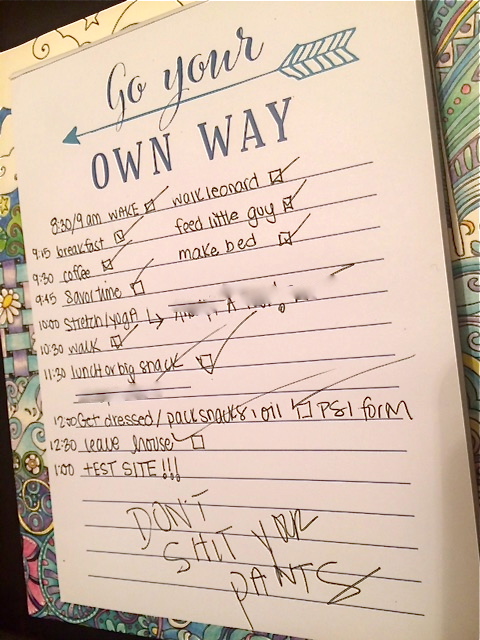 Go your
OWN WAY
8:30/9am WAKE walk leonard
9:15 breakfast feed little guy
9:30 coffee make bed
9:45 Savor time
10:00 Stretch/yoga
10:30 walk
11:30 lunch or big snack
12:00 Get dressed/pack snacks, oil PSI form
12:30 leave house
1:00 tEST SITE!!!
DON'T
SHIT YOUR
PANTS